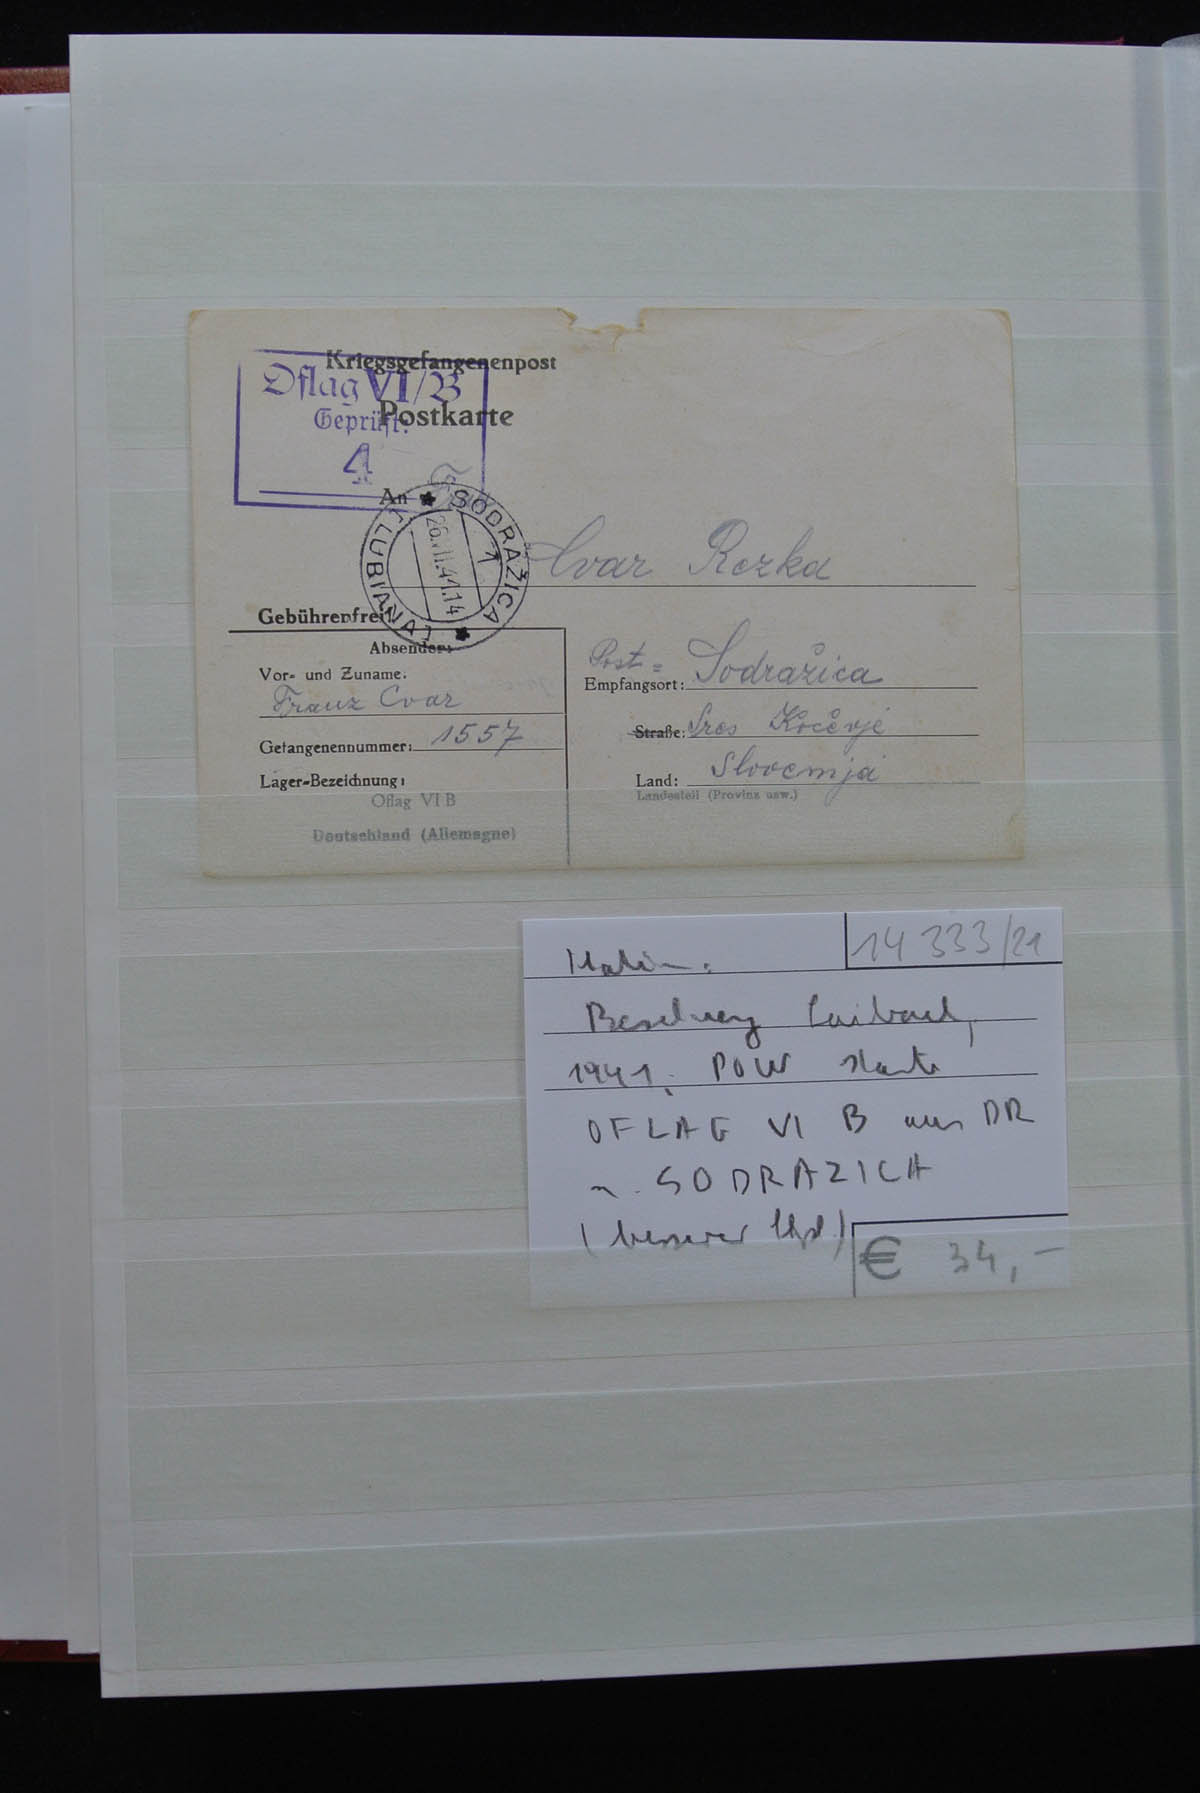 Kriegsgefangenenpost
Oflag VI/B
Geprüft:
4
Postkarte
An
SODRAŽICA
(LUBIANA)
1
26.VII.41.14
Cvar Rezka
Gebührenfrei!
Absender:
Vor- und Zuname:
Franz Cvar
Gefangenennummer: 1557
Lager-Bezeichnung:
Oflag VI B
Deutschland (Allemagne)
Post=
Empfangsort: Sodražica
Straße: Sres Kočevje
Land: Slovenija
Landesteil (Provinz usw.)
14 333/21
Italien.
Besetzung Laibach,
1941. POW Karte
OFLAG VI B aus DR
n. SODRAZICA
(besserer
€ 34,-